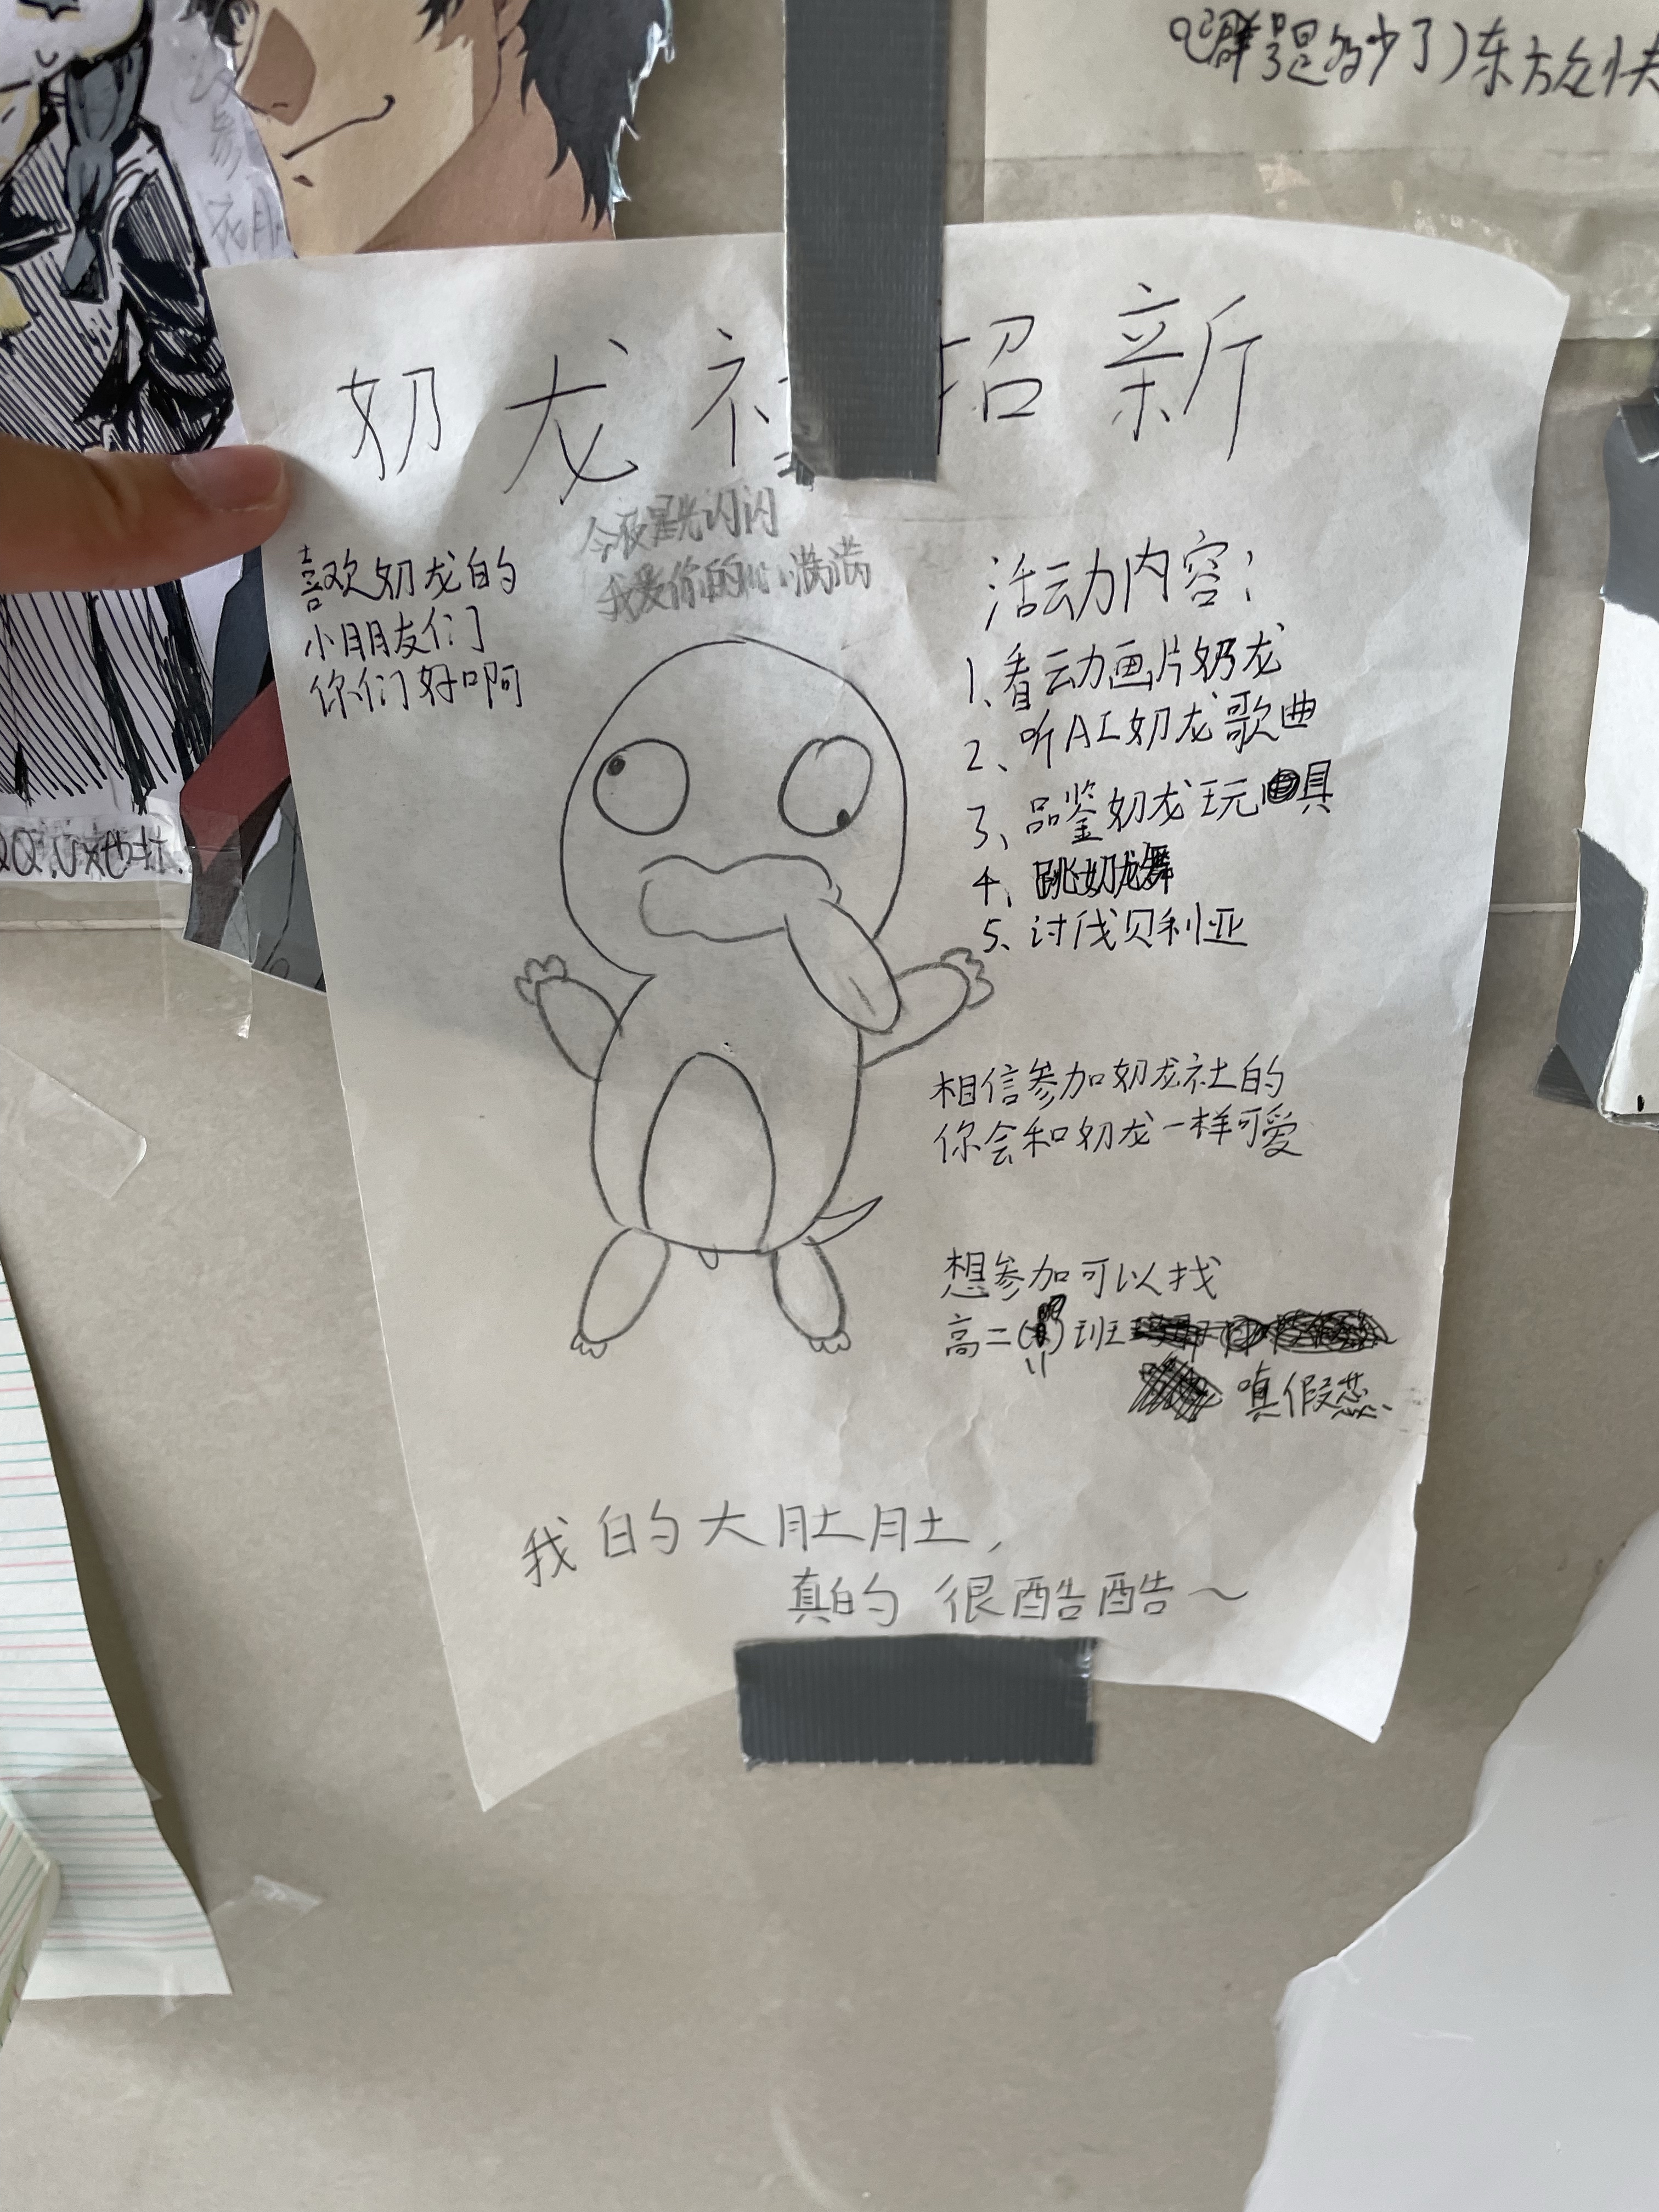 Q群号是多少了)东方众快
奶龙社招新
今夜星光闪闪
我爱你的心满满
喜欢奶龙的
小朋友们
你们好啊
活动内容：
1、看动画片奶龙
2、听AI奶龙歌曲
3、品鉴奶龙玩具
4、跳奶龙舞
5、讨伐贝利亚
相信参加奶龙社的
你会和奶龙一样可爱
想参加可以找
高二( )班
嗔假蕊
我的大肚肚，
真的 很酷酷～